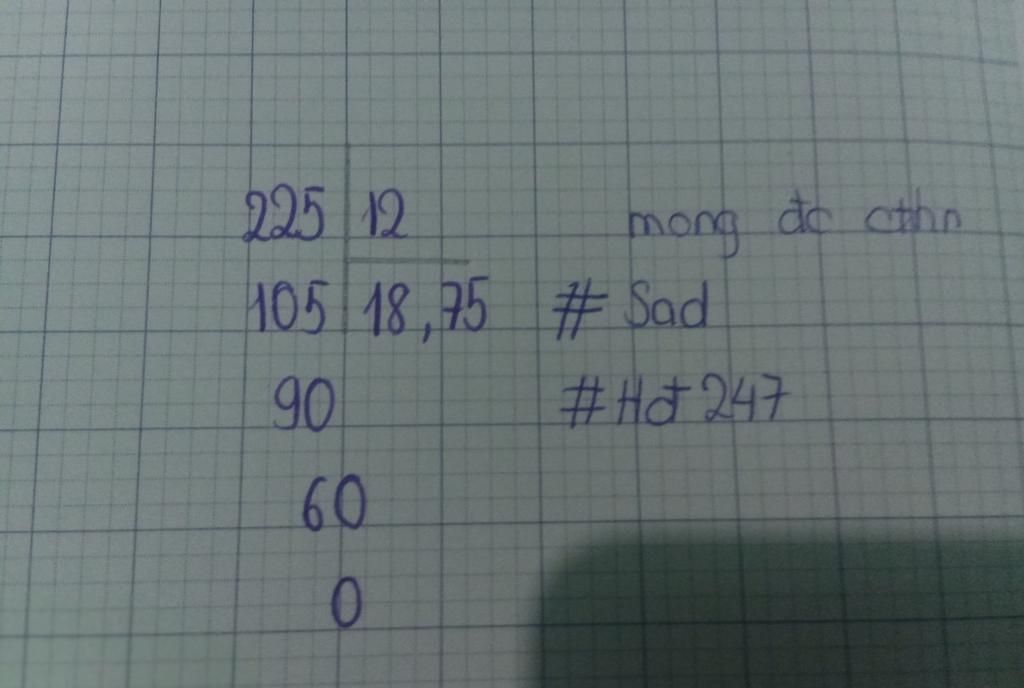 225 12 mong đc cthn
105 18,75 # Sad
90 # Hot 247
60
0